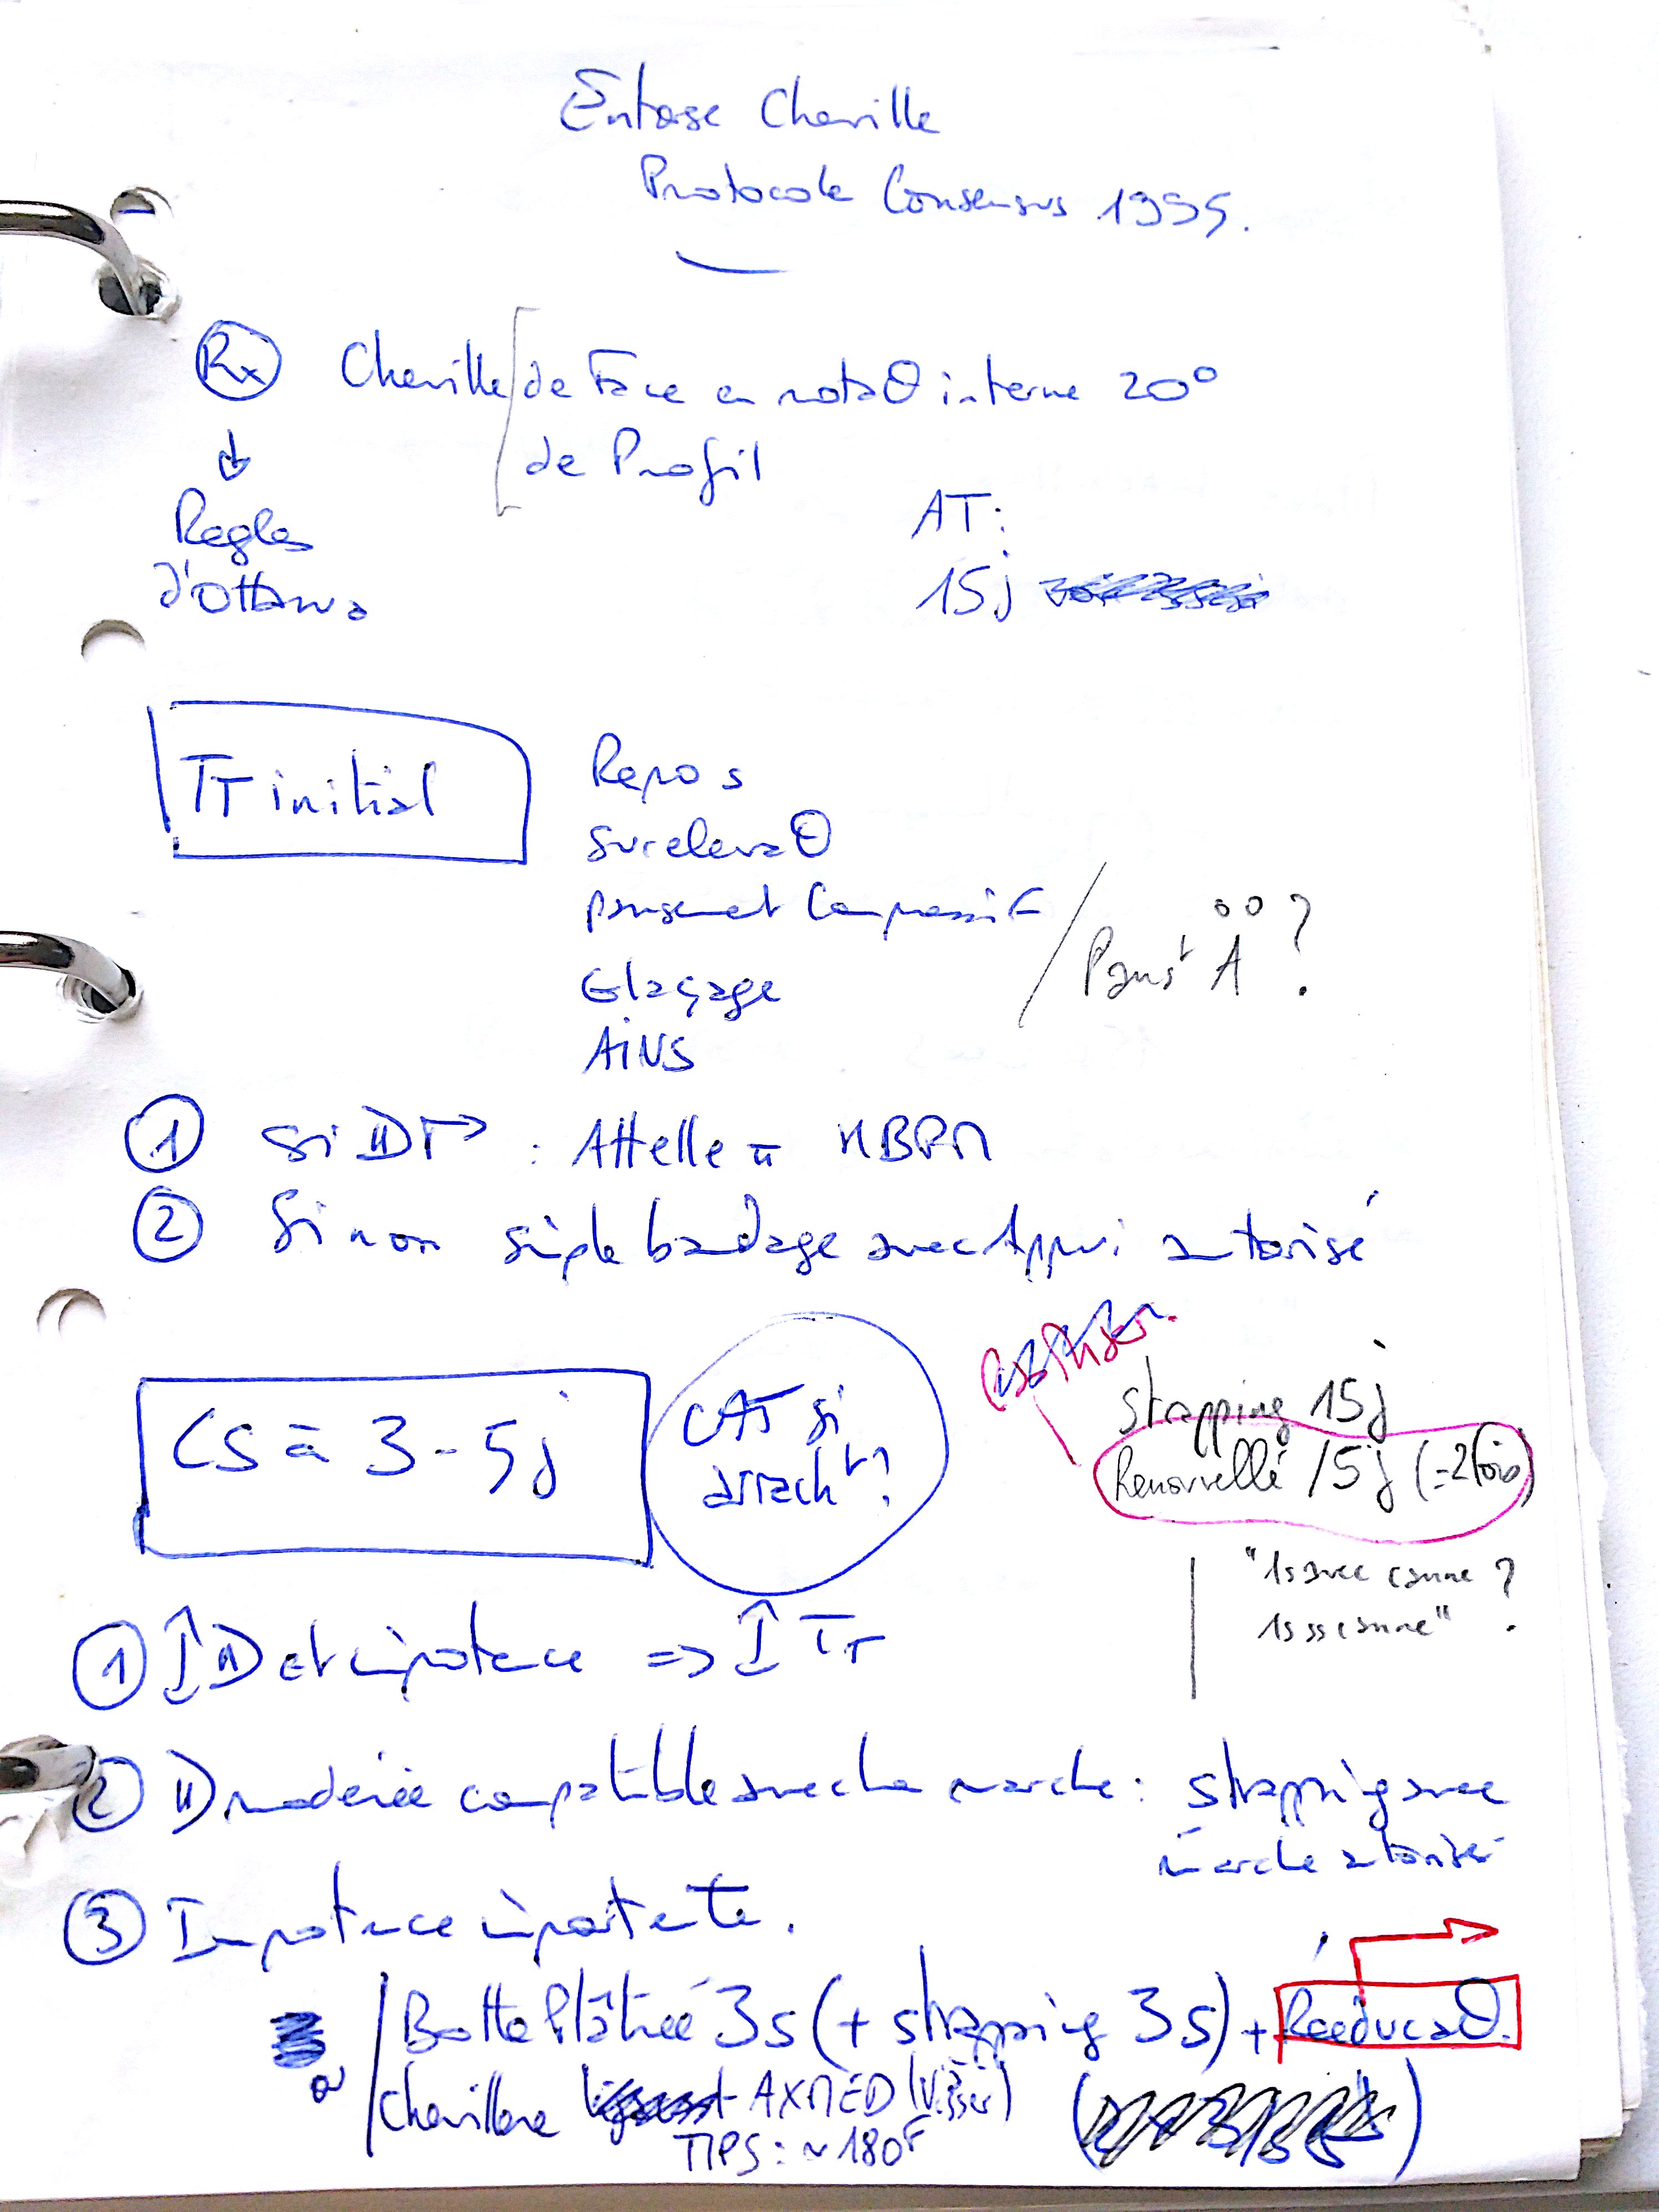 Entorse Cheville
Protocole Consensus 1995.
Rx Cheville de Face en rotaθ interne 20°
de Profil
↓
Regles
d'Ottawa
AT:
15j
TT initial
Repos
surelevaθ
pansement Compressif / Panst Å ?
Glaçage
AINS
① Si : Attelle HBPM
② Si non simple bandage avec Appui autorisé
CS à 3-5j
CAT si
aracht?
strapping 15j
Renouvellé /5j (=2fois)
"1s avec canne ?
1s ss canne" ?
① et impotence => TT
② modérée compatible avec la marche : strapping avec
marche autorisée
③ Impotence importante.
Botte Plâtrée 3s (+ strapping 3s) + Rééducaθ.
Chevillere AXMED (Visser)
TIPS: ~180F